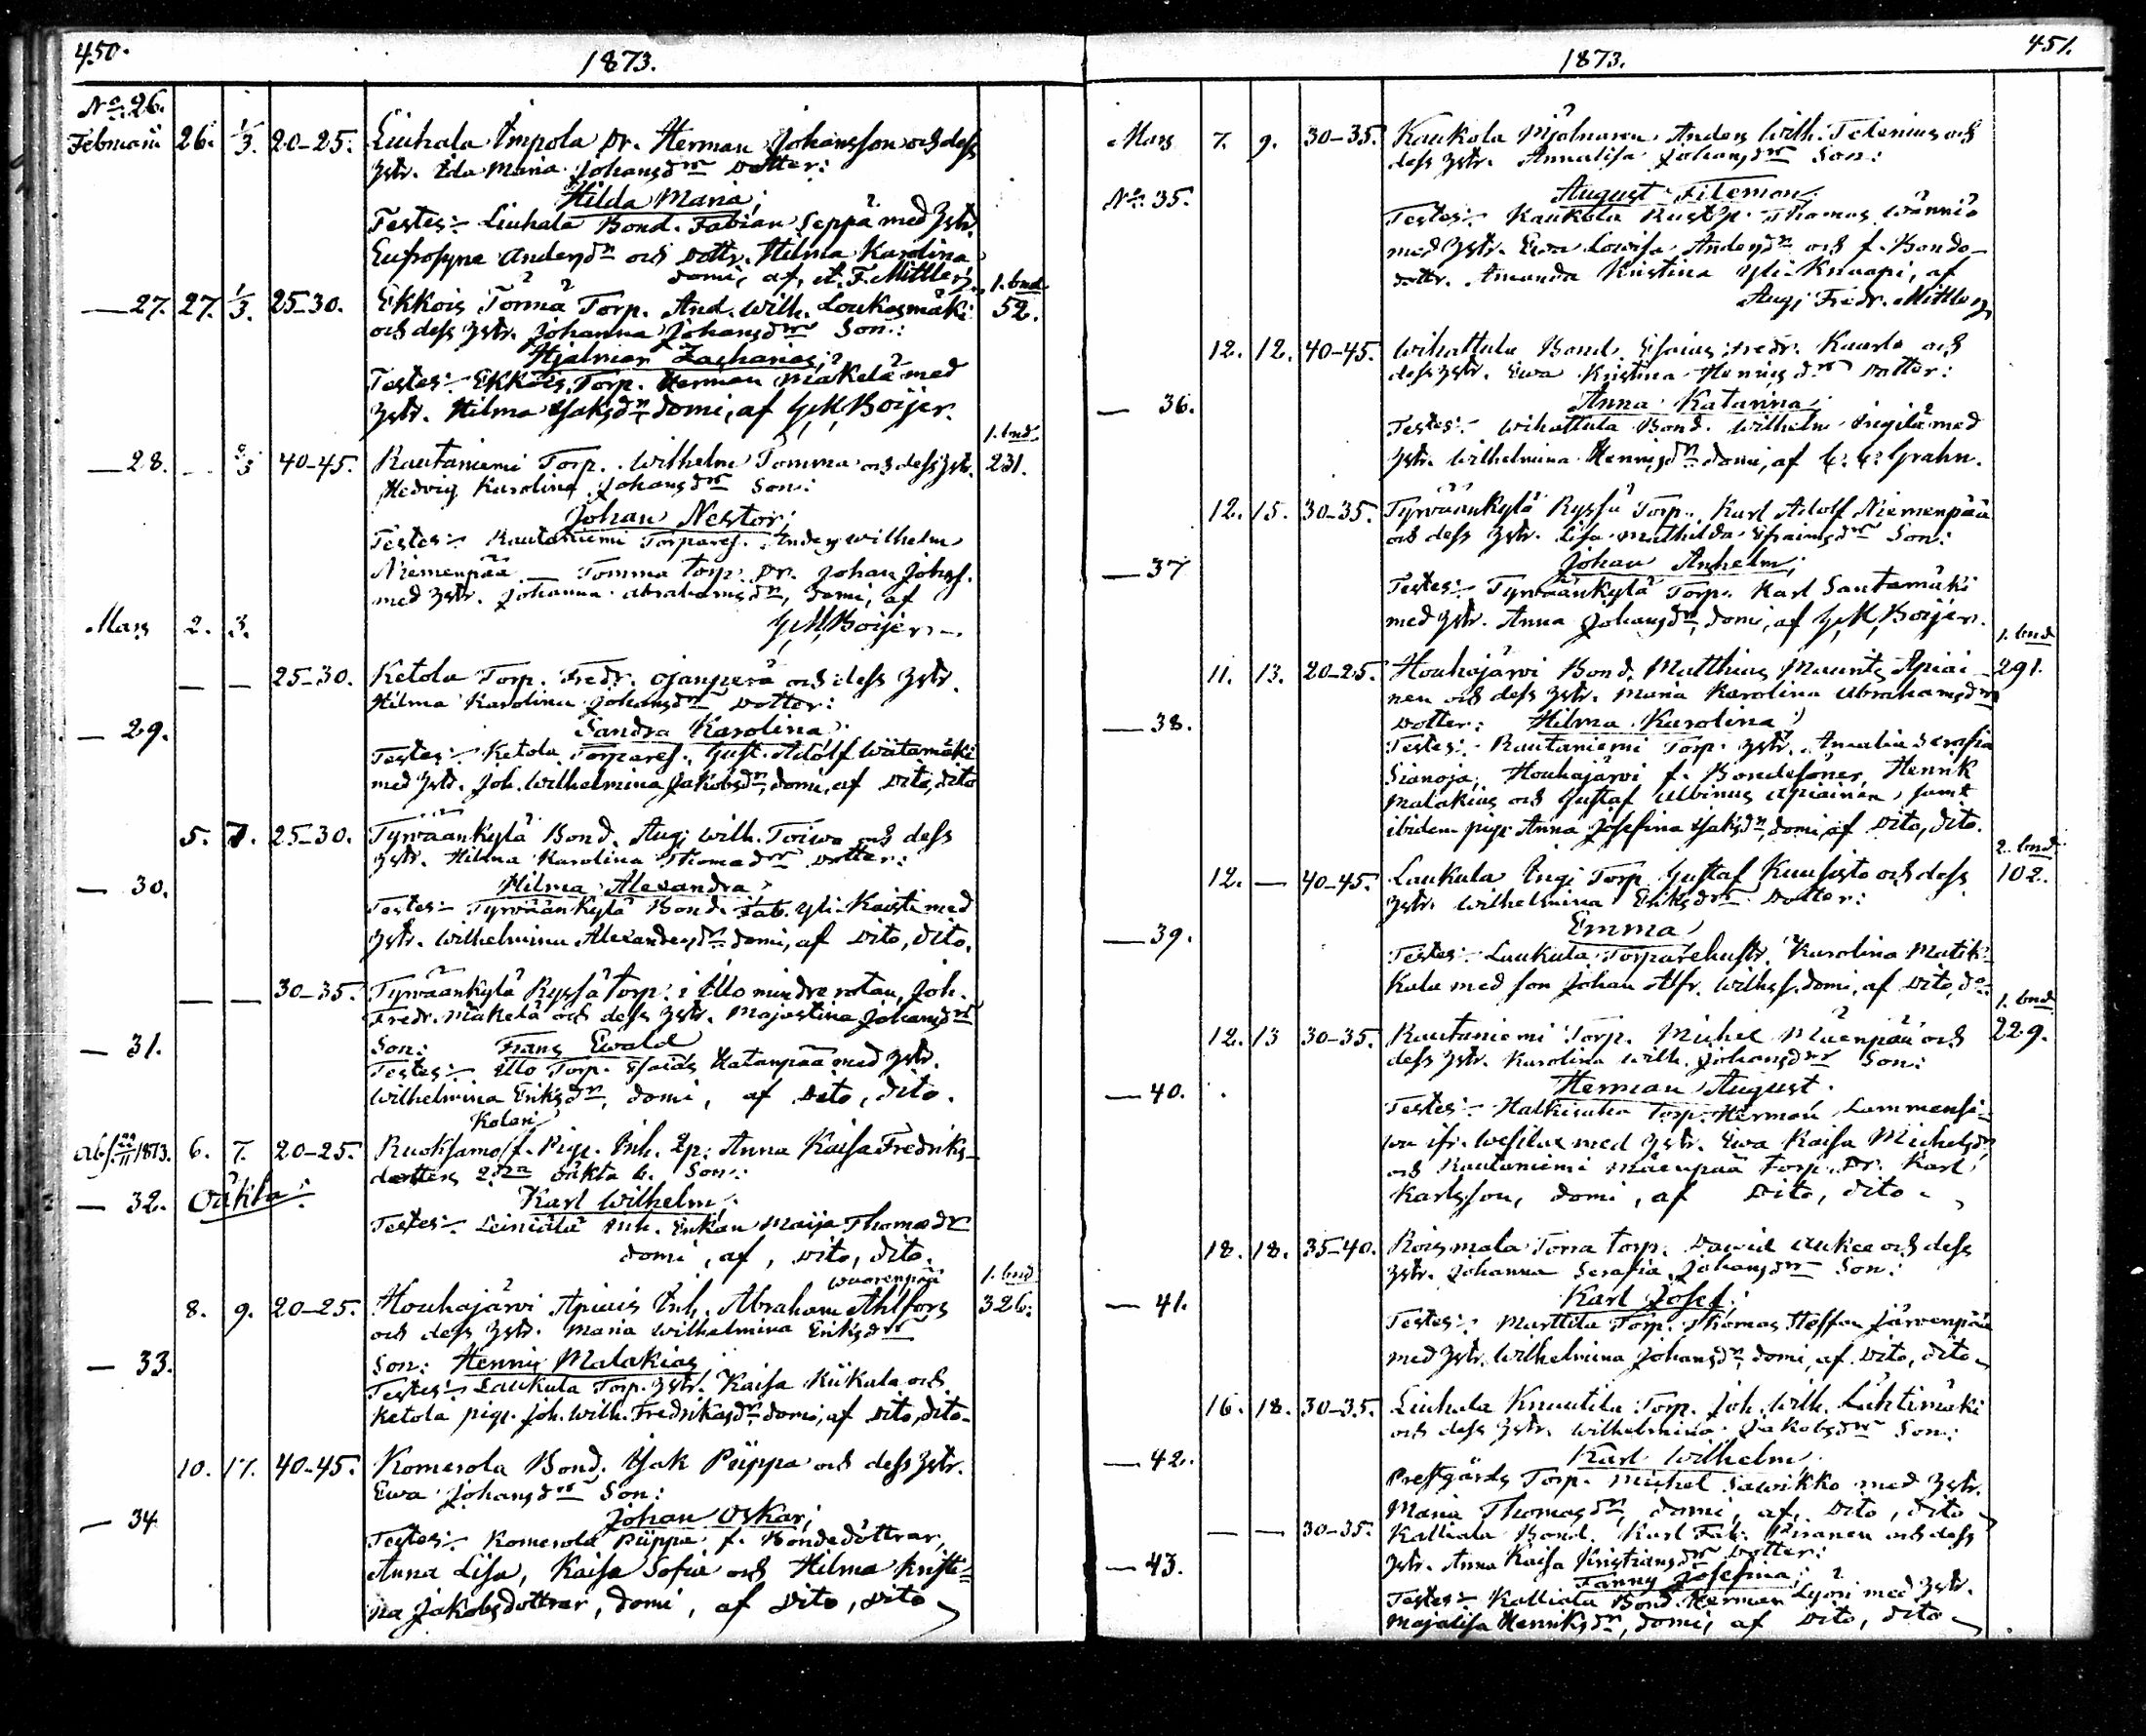 450.
1873.
No. 26.
Februari 26. 1/3. 20-25. Liuhala Impola Dr. Herman Johansson och dess
hstr. Ida Maria Johansdr Dotter:
Hilda Maria;
Testes:- Liuhala Bond. Fabian Seppä med hstr.
Eufrosyne Andersdr och Dottr. Hilma Karolina
domi, af, A. F. Mittler,
1. bnd
— 27. 27. 1/3. 25-30. Ekkois Tormä Torp. And. Wilh. Loukasmäki 52.
och dess hstr. Johanna Johansdr Son:
Hjalmar Zacharias;
Testes:- Ekkois, Torp. Herman Mäkelä med
hstr. Hilma Isaksdr domi, af G, M, Boijer.
1. bnd.
— 28. — 2/3 40-45. Rautaniemi Torp. Wilhelm Tomma och dess hstr. 231.
Hedvig Karolina Johansdr Son:
Johan Nestor;
Testes:- Rautaniemi Torparef. Anders Wilhelm
Niemenpää — Tomma torp. Dr. Johan Johsf.
med hstr. Johanna Abrahamsdr, domi, af
Mars 2. 3. G, M, Boijer —
— — 25-30. Ketola Torp. Fredr. Ojanperä och dess hstr.
Hilma Karolina Johansdr Dotter:
— 29. Sandra Karolina
Testes:- Ketola Torparef. Gust. Adolf Wätamäki
med hstr. Joh. Wilhelmina Jakobsdr, domi, af Dito, dito
5. 7. 25-30. Tyrväänkylä Bond. Aug, Wilh. Toiwo och dess
hstr. Hilma Karolina Thomadr Dotter:
— 30. Hilma Alexandra
Testes:- Tyrväänkylä Bond. Fab. Yli-Kaisti med
hstr. Wilhelmina Alexandersdr domi, af Dito, Dito.
— — 30-35. Tyrväänkylä Ryssä torp. i Illo mindre rotan, Joh.
Fredr. Mäkelä och dess hstr. Majastina Johansdr
— 31. Son: Frans Ewald
Testes:- Illo Torp. Esaias Hatanpää med hstr.
Wilhelmina Eriksdr, domi, af Dito, dito.
Kolari
Abs. 22/11 1873. 6. 7. 20-25. Ruoksamo f. Pig. Inh. Ep. Anna Kaisa Fredriks-
dotters 2dra oäkta b. Son:
— 32. Oäkta: Karl Wilhelm
Testes:- Leiniälä Inh. Enkan Maija Thomadr
domi, af, Dito, dito.
Wuorenpää 1. bnd
8. 9. 20-25. Houhajärvi Apiais Inh. Abraham Ahlfors 326.
och dess hstr. Maria Wilhelmina Eriksdr
— 33. Son: Hennig Malakias
Testes:- Laukula Torp. hstr. Kaisa Kiikala och
Ketola pig. Joh. Wilh. Fredriksdr domi, af Dito, dito
10. 17. 40-45. Komerola Bond. Isak Piippa och dess hstr.
Ewa Johansdr Son:
— 34 Johan Oskar;
Testes:- Komerola Piippa f. Bondedöttrar,
Anna Lisa, Kaisa Sofia och Hilma Kristi=
na Jakobsdottrar, domi, af Dito, Dito
451.
1873.
Mars 7. 9. 30-35. Kaukola Mjölnaren Anders Wilh. Telenius och
dess hstr. Annalisa Johansdr Son:
No. 35. August Filemon
Testes:- Kaukola Rusth. Thomas Wänniö
med hstr. Ewa Lowisa Andersdr och f. Bonde-
dottr. Amanda Kristina Yli-Knaapi, af
Aug, Fredr. Mittler
12. 12. 40-45. Wihattula Bond. Esaias Fredr. Kaurla och
dess hstr. Ewa Kristina Henrigsdr Dotter:
— 36. Anna Katarina
Testes:- Wihattula Bond. Wilhelm Pirgilä med
hstr. Wilhelmina Henrigsdr domi, af C. C. Grahn.
12. 15. 30-35. Tyrväänkylä Ryssä Torp. Karl Adolf Niemenpää
och dess hstr. Lisa Mathilda Efraimsdr Son:
— 37 Johan Anshelm;
Testes:- Tyrväänkylä Torp. Karl Santamäki
med hstr. Anna Johansdr, domi, af G, M, Boijer.
1. bnd
11. 13. 20-25. Houhajärvi Bond. Matthias Maurits Apiai- 291.
nen och dess hstr. Maria Karolina Abrahamsdr
— 38. Dotter: Hilma Karolina
Testes:- Rautaniemi Torp. hstr. Amalia Serafia
Sianoja, Houhajärvi f. Bondesöner Henrik
Malakias och Gustaf Albinus Apiainen, samt
ibidem pig. Anna Josefina Isaksdr, domi, af Dito, dito.
2. bnd.
12. — 40-45. Laukula Ingi Torp Gustaf Kuusisto och dess 102.
hstr. Wilhelmina Eriksdr Dotter:
— 39. Emma
Testes:- Laukula Torparehustr. Karolina Matik-
kala med son Johan Alfr. Wilhsf. domi, af Dito, do
1. bnd
12. 13 30-35. Rautaniemi Torp. Michel Mäenpää och 229.
dess hstr. Karolina Wilh. Johansdr Son:
— 40. Herman August.
Testes:- Halkivaha Torp. Herman Lammensi-
wu ifr. Wesilax med hstr. Ewa Kaisa Michelsdr
och Rautaniemi Mäenpää torp. Dr. Karl
Karlsson, domi, af Dito, dito
18. 18. 35-40. Roismala Torra torp. David Aukee och dess
hstr. Johanna Serafia Johansdr Son:
— 41. Karl Josef;
Testes:- Marttila Torp. Thomas Steffan Järvenpää
med hstr. Wilhelmina Johansdr, domi, af Dito, dito
16. 18. 30-35. Liuhala Knuutila Torp. Joh. Wilh. Lähtimäki
och dess hstr. Wilhelmina Jakobsdr Son:
— 42. Karl Wilhelm
Prestgårds Torp. Michel Sawikko med hstr.
Maria Thomasdr, domi, af, Dito, dito
— — 30-35. Kalliala Bond. Karl Fab. och dess
hstr. Anna Kaisa Kristiansdr Dotter:
— 43. Fanny Josefina;
Testes:- Kalliala Bond. Herman Lyöri med hstr.
Majalisa Henriksdr, domi, af Dito, dito